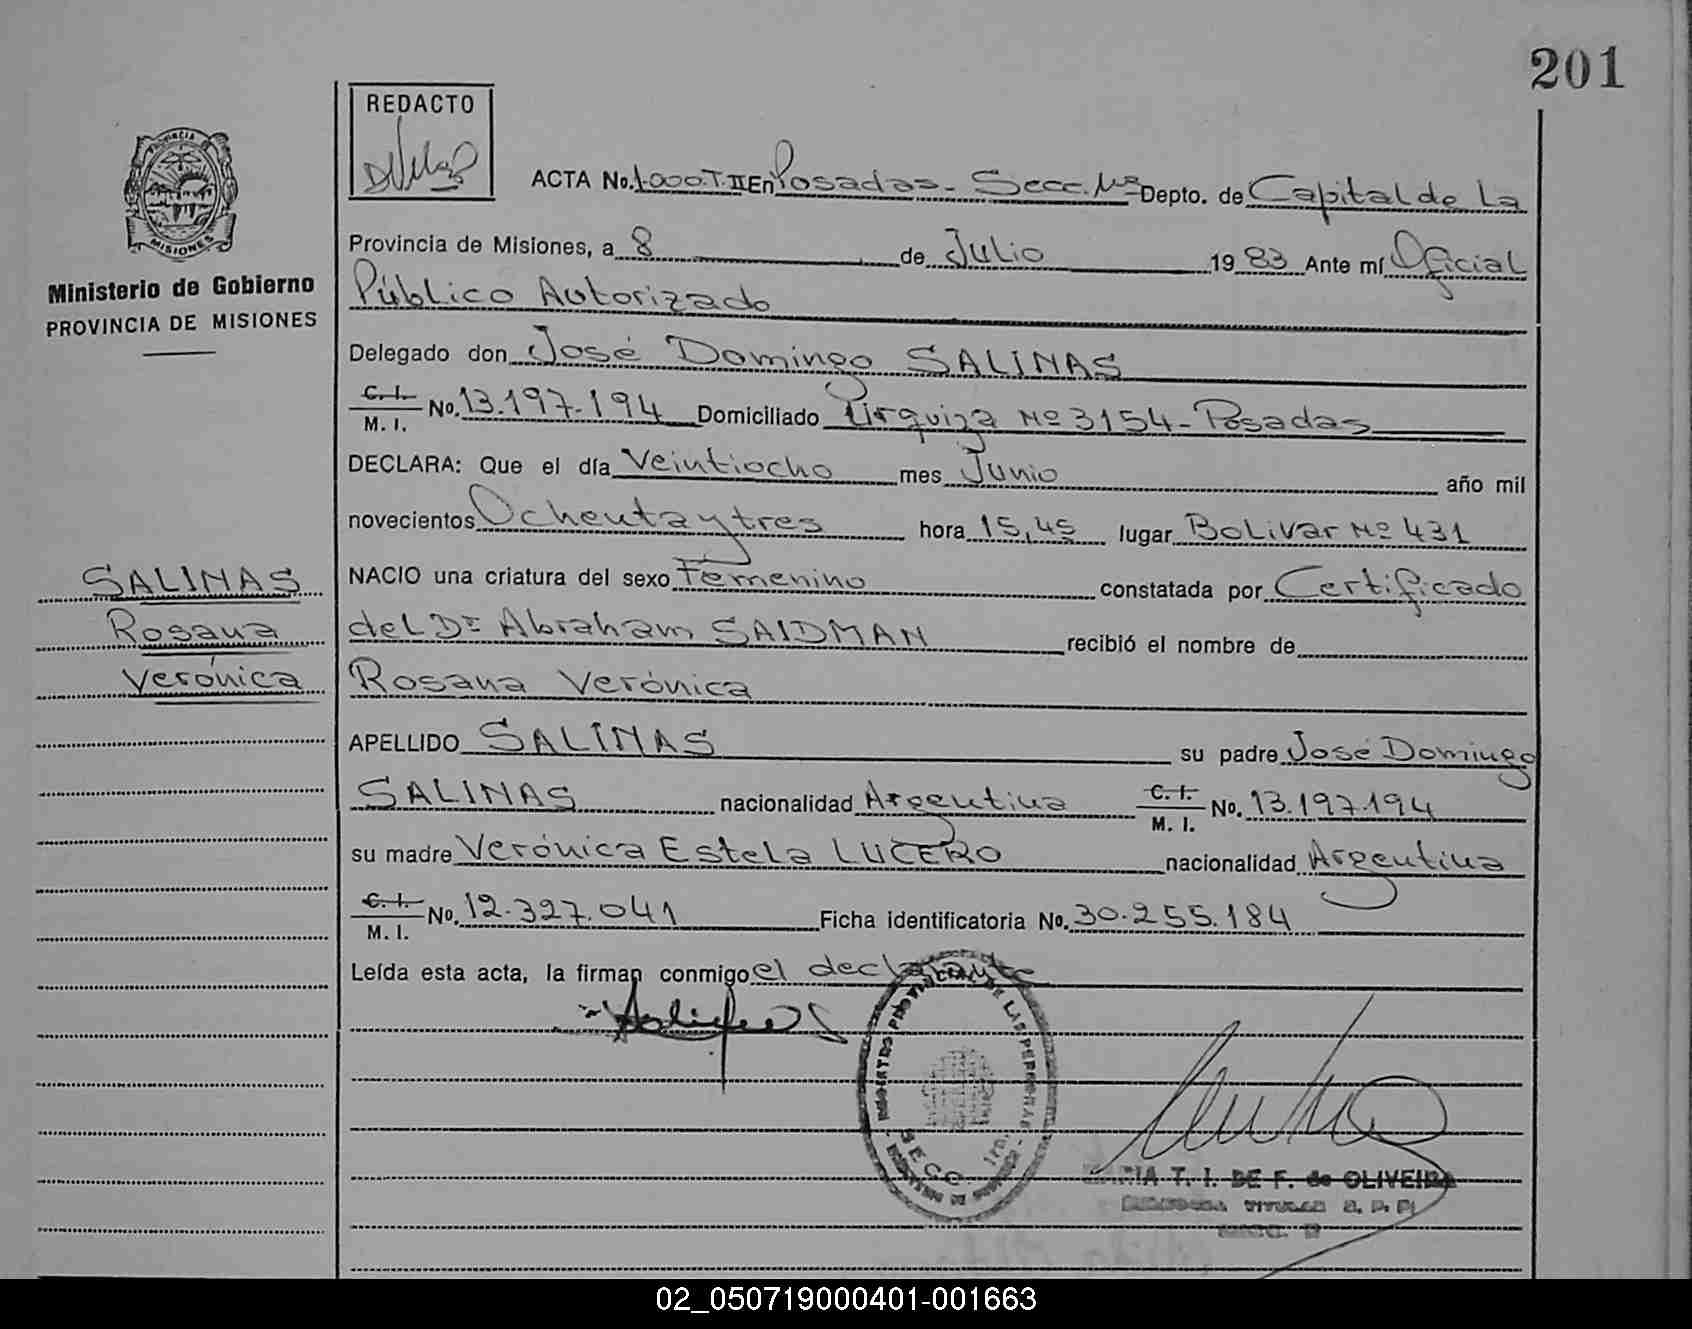 201
REDACTO
PROVINCIA
MISIONES
Ministerio de Gobierno
PROVINCIA DE MISIONES
ACTA No. 1.000.T.II En Posadas - Secc. 1ª Depto. de Capital de La
Provincia de Misiones, a 8 de Julio 19 83 Ante mí Oficial
Público Autorizado
Delegado don José Domingo SALINAS
C. I. / M. I. No. 13.197.194 Domiciliado Urquiza Nº 3154 - Posadas
DECLARA: Que el día Veintiocho mes Junio año mil
novecientos Ochenta y tres hora 15,45 lugar Bolivar Nº 431
NACIO una criatura del sexo Femenino constatada por Certificado
del Dr Abraham SAIDMAN recibió el nombre de
Rosana Verónica
APELLIDO SALINAS su padre José Domingo
SALINAS nacionalidad Argentina C. I. / M. I. No. 13.197.194
su madre Verónica Estela LUCERO nacionalidad Argentina
C. I. / M. I. No. 12.327.041 Ficha identificatoria No. 30.255.184
Leída esta acta, la firman conmigo el declarante
SALINAS
Rosana
Verónica
REGISTRO PROVINCIAL DE LAS PERSONAS
SECC. 1ra.
T. I. DE F. de OLIVEIRA
TITULAR R. P. P.
02_050719000401-001663